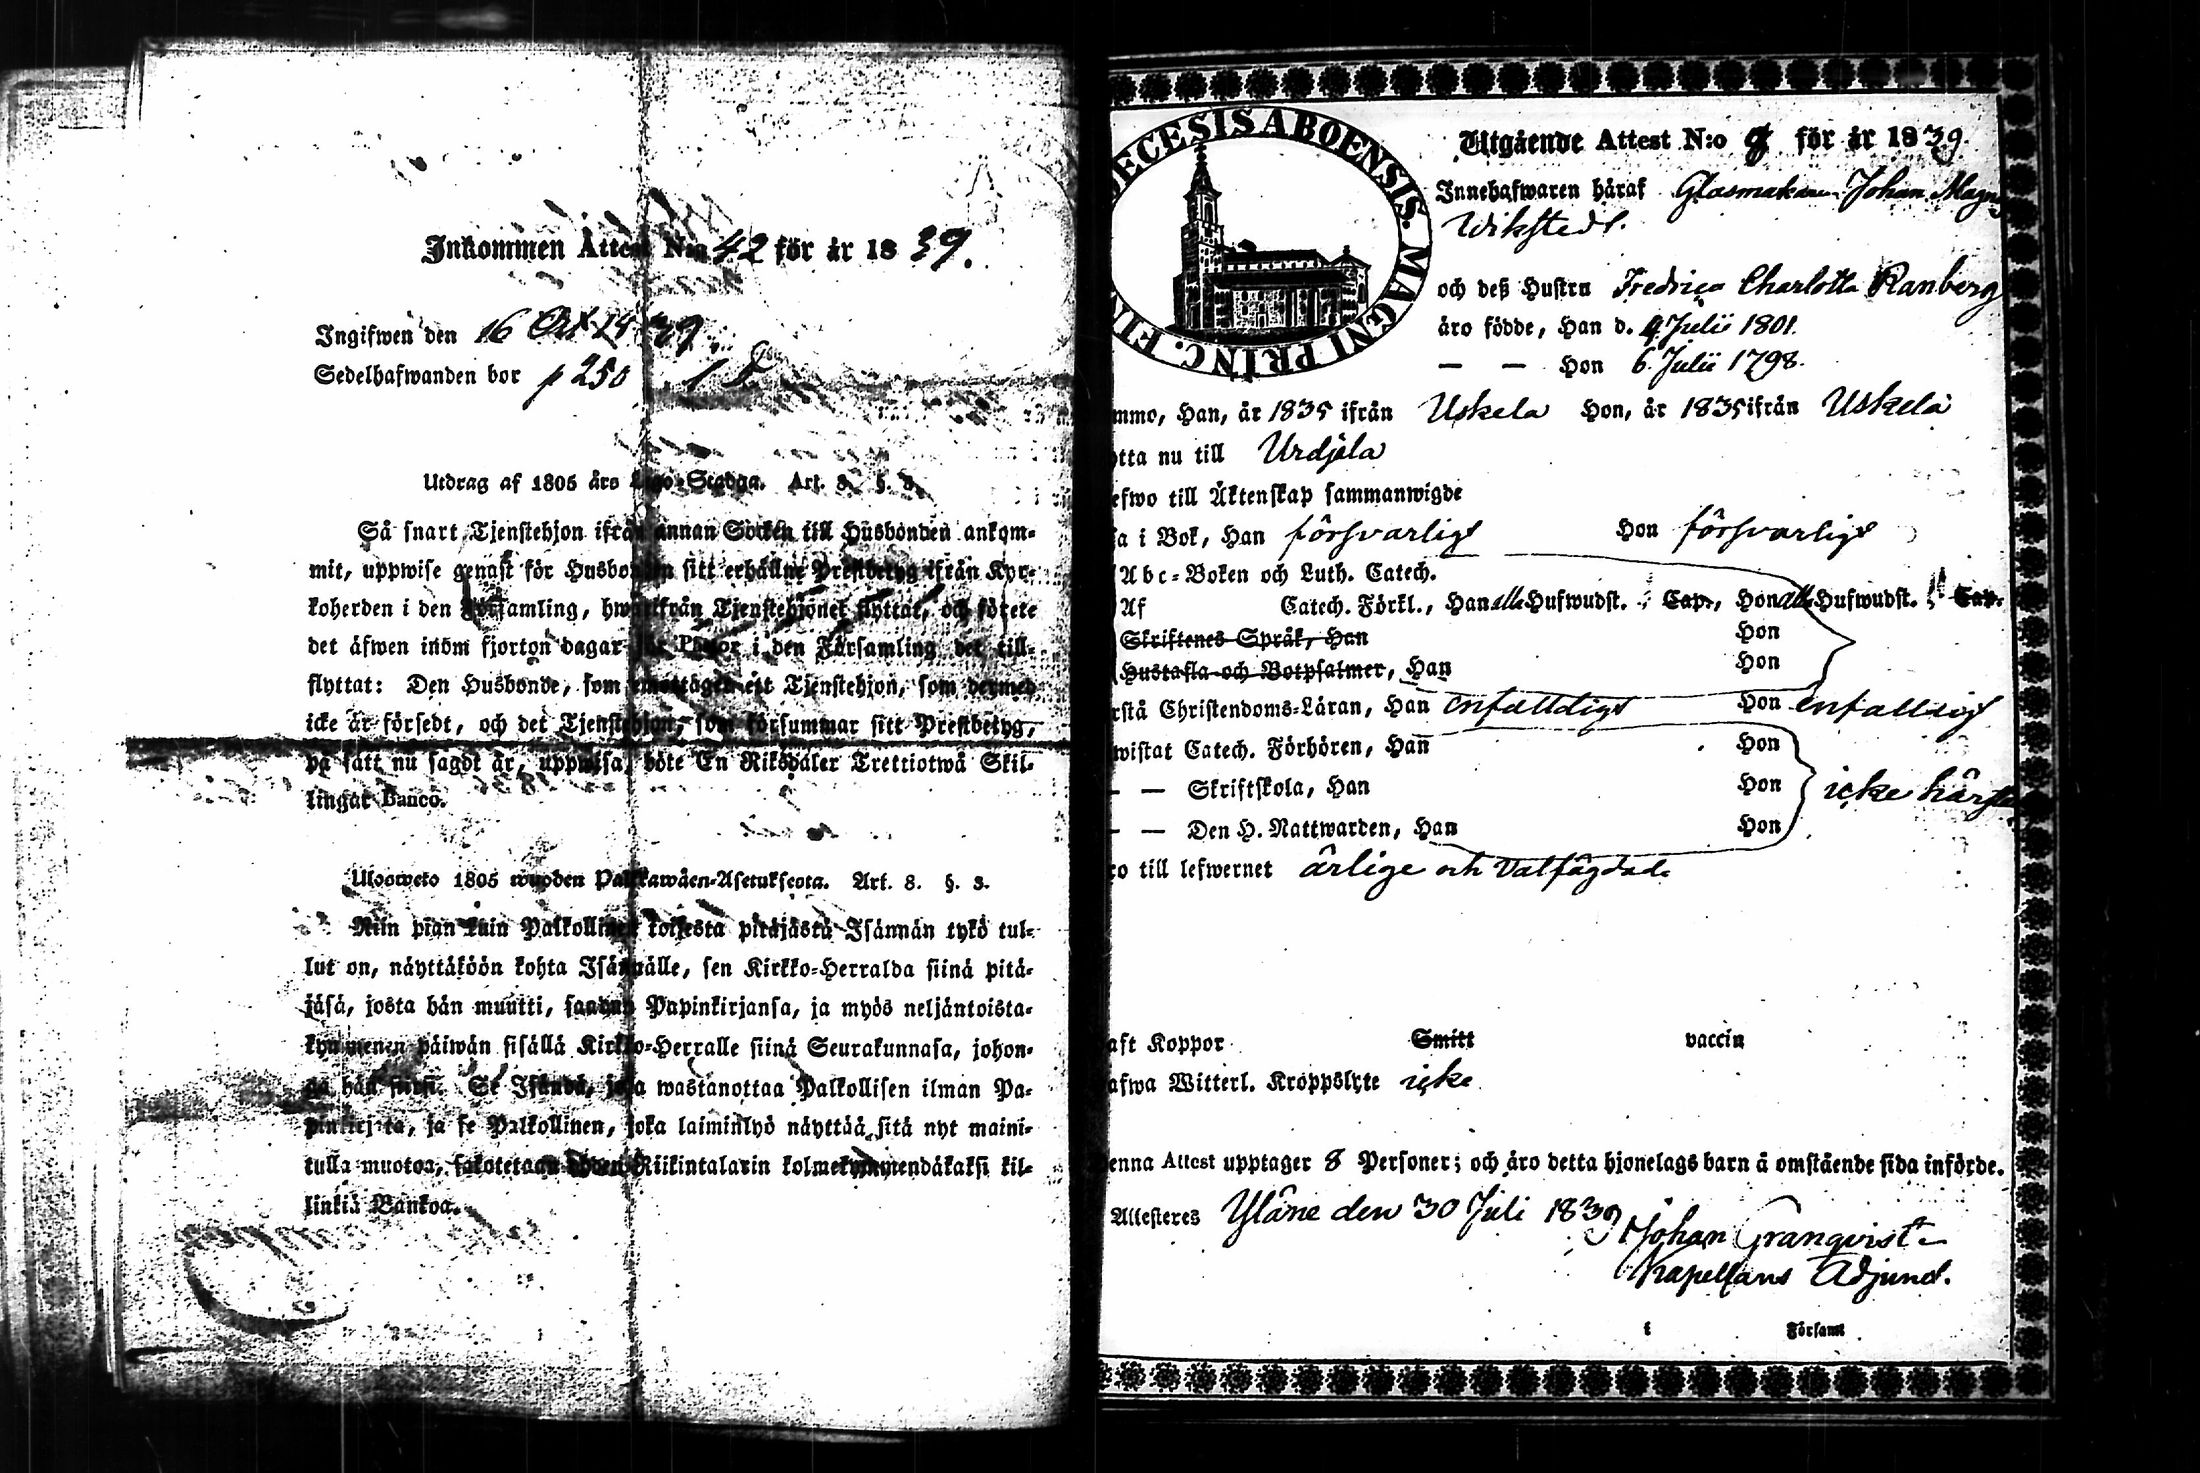 Inkommen Attest N:o 42 för år 1839.
Ingifwen den 16 Oct 1839.
Sedelhafwanden bor p 250
Utdrag af 1805 års Lego-Stadga. Art. 8. §. 3.
Så snart Tjenstehjon ifrån annan Socken till Husbonden ankom-
mit, uppwise genast för Husbonden sitt erhållne Prestbetyg ifrån Kyr-
koherden i den Församling, hwartifrån Tjenstehjonet flyttat, och förete
det äfwen inom fjorton dagar för Pastor i den Församling det till-
flyttat: Den Husbonde, som emottager ett Tjenstehjon, som dermed
icke är försedt, och det Tjenstehjon, som försummar sitt Prestbetyg,
på sätt nu sagdt är, uppwisa, böte En Riksdaler Trettiotwå Skil-
lingar Banco.
Ulosweto 1805 wuoden Palkkawäen-Asetuksesta. Art. 8. §. 3.
Niin pian kuin Palkollinen toisesta pitäjästä Isännän tykö tul-
lut on, näyttäköön kohta Isännälle, sen Kirkko-Herralda siinä pitä-
jäsä, josta hän muutti, saadun Papinkirjansa, ja myös neljäntoista-
kymmenen päiwän sisällä Kirkko-Herralle siinä Seurakunnasa, johon-
ga hän siirsi. Se Isändä, joka wastanottaa Palkollisen ilman Pa-
pinkirjata, ja se Palkollinen, joka laiminlyö näyttää sitä nyt maini-
tulla muotoa, sakotetaan yhden Riikintalarin kolmekymmendäkaksi kil-
linkiä Bankoa.
DECESIS ABOENSIS. MAGNI PRINC. FIN
Utgående Attest N:o för år 1839.
Innehafwaren häraf Glasmakare Johan Magn
Wikstedt.
och deß Hustru Fredrica Charlotta Ranberg
äro födde, Han d. 4 Julii 1801.
— — Hon 6 Julii 1798.
mmo, Han, år 1835 ifrån Uskela Hon, år 1835 ifrån Uskela
otta nu till Urdjala
efwo till Äktenskap sammanwigde
sa i Bok, Han försvarligt Hon försvarligt
Abc-Boken och Luth. Catech.
Af Catech. Förkl., Han alla Hufwudst. Cap., Hon alla Hufwudst. Cap.
Skriftenes Språk, Han Hon
Hustafla och Botpsalmer, Han Hon
rstå Christendoms-Läran, Han enfalldigt Hon enfalldigt
wistat Catech. Förhören, Han Hon
— — Skriftskola, Han Hon icke härstä
— — Den H. Nattwarden, Han Hon
ro till lefwernet ärlige och välfrägdade
aft Koppor Smitt vaccin
afwa Witterl. Kroppslyte icke
enna Attest upptager 8 Personer; och äro detta hjonelags barn å omstående sida införde.
Attesteres Yläne den 30 Juli 1839
Johan Granqvist
Kapellans Adjund.
Församl